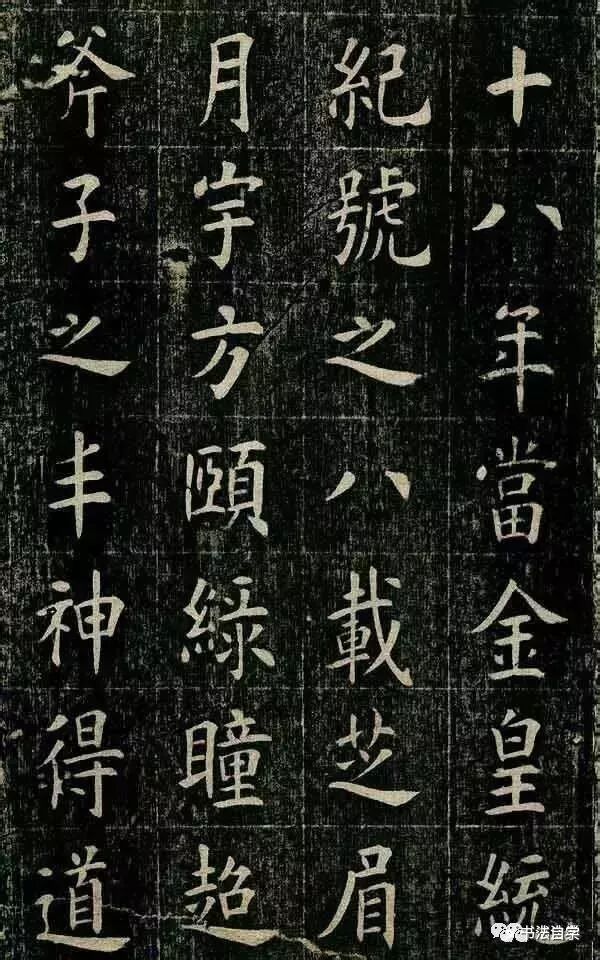 十八年當金皇統
紀號之八載芝眉
月宇方頤綠瞳超
斧子之丰神得道
书法自学